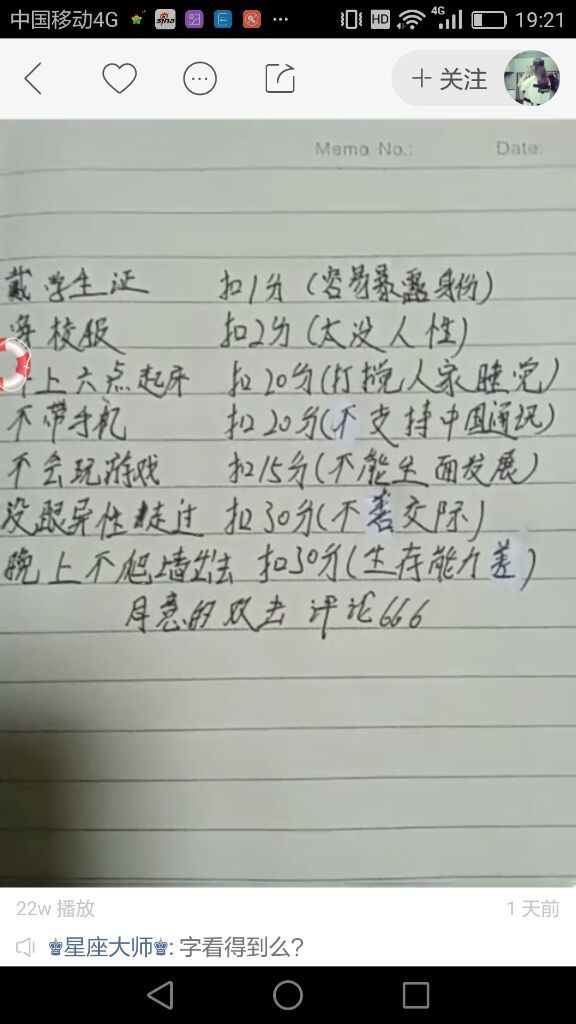 中国移动4G HD 4G 19:21
+ 关注
Memo No.: Date:
戴学生证 扣1分（容易暴露身份）
穿校服 扣2分（太没人性）
早上六点起床 扣20分（打搅人家睡觉）
不带手机 扣20分（不支持中国通讯）
不会玩游戏 扣15分（不能全面发展）
没跟异性走过 扣30分（不善交际）
晚上不爬墙出去 扣30分（生存能力差）
同意的双击 评论666
22w 播放 1 天前
♚星座大师♚: 字看得到么？